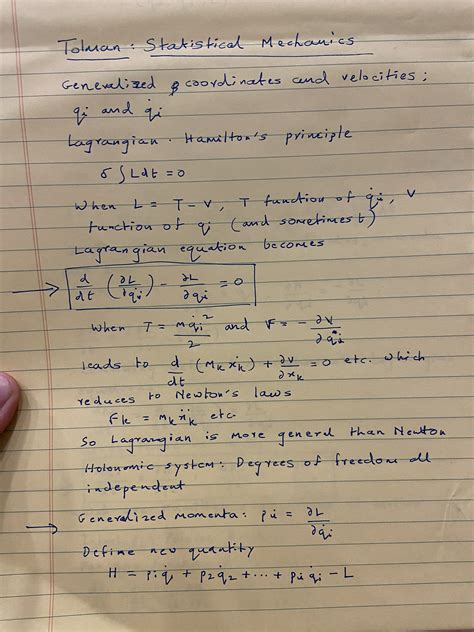 Tolman: Statistical Mechanics
Generalized coordinates and velocities;
qi and q̇i
Lagrangian. Hamilton's principle
σ ∫ L dt = 0
When L = T - V, T function of q̇i, V
function of qi (and sometimes t)
Lagrangian equation becomes
→ d/dt (∂L/∂q̇i) - ∂L/∂qi = 0
When T = mq̇i²/2 and F = - ∂V/∂qi
leads to d/dt (Mk ẋk) + ∂V/∂xk = 0 etc. which
reduces to Newton's laws
Fk = mk ẍk etc.
So Lagrangian is more general than Newton
Holonomic system: Degrees of freedom all
independent
→ Generalized momenta: pi = ∂L/∂q̇i
Define new quantity
H = p1q̇1 + p2q̇2 + ... + piq̇i - L